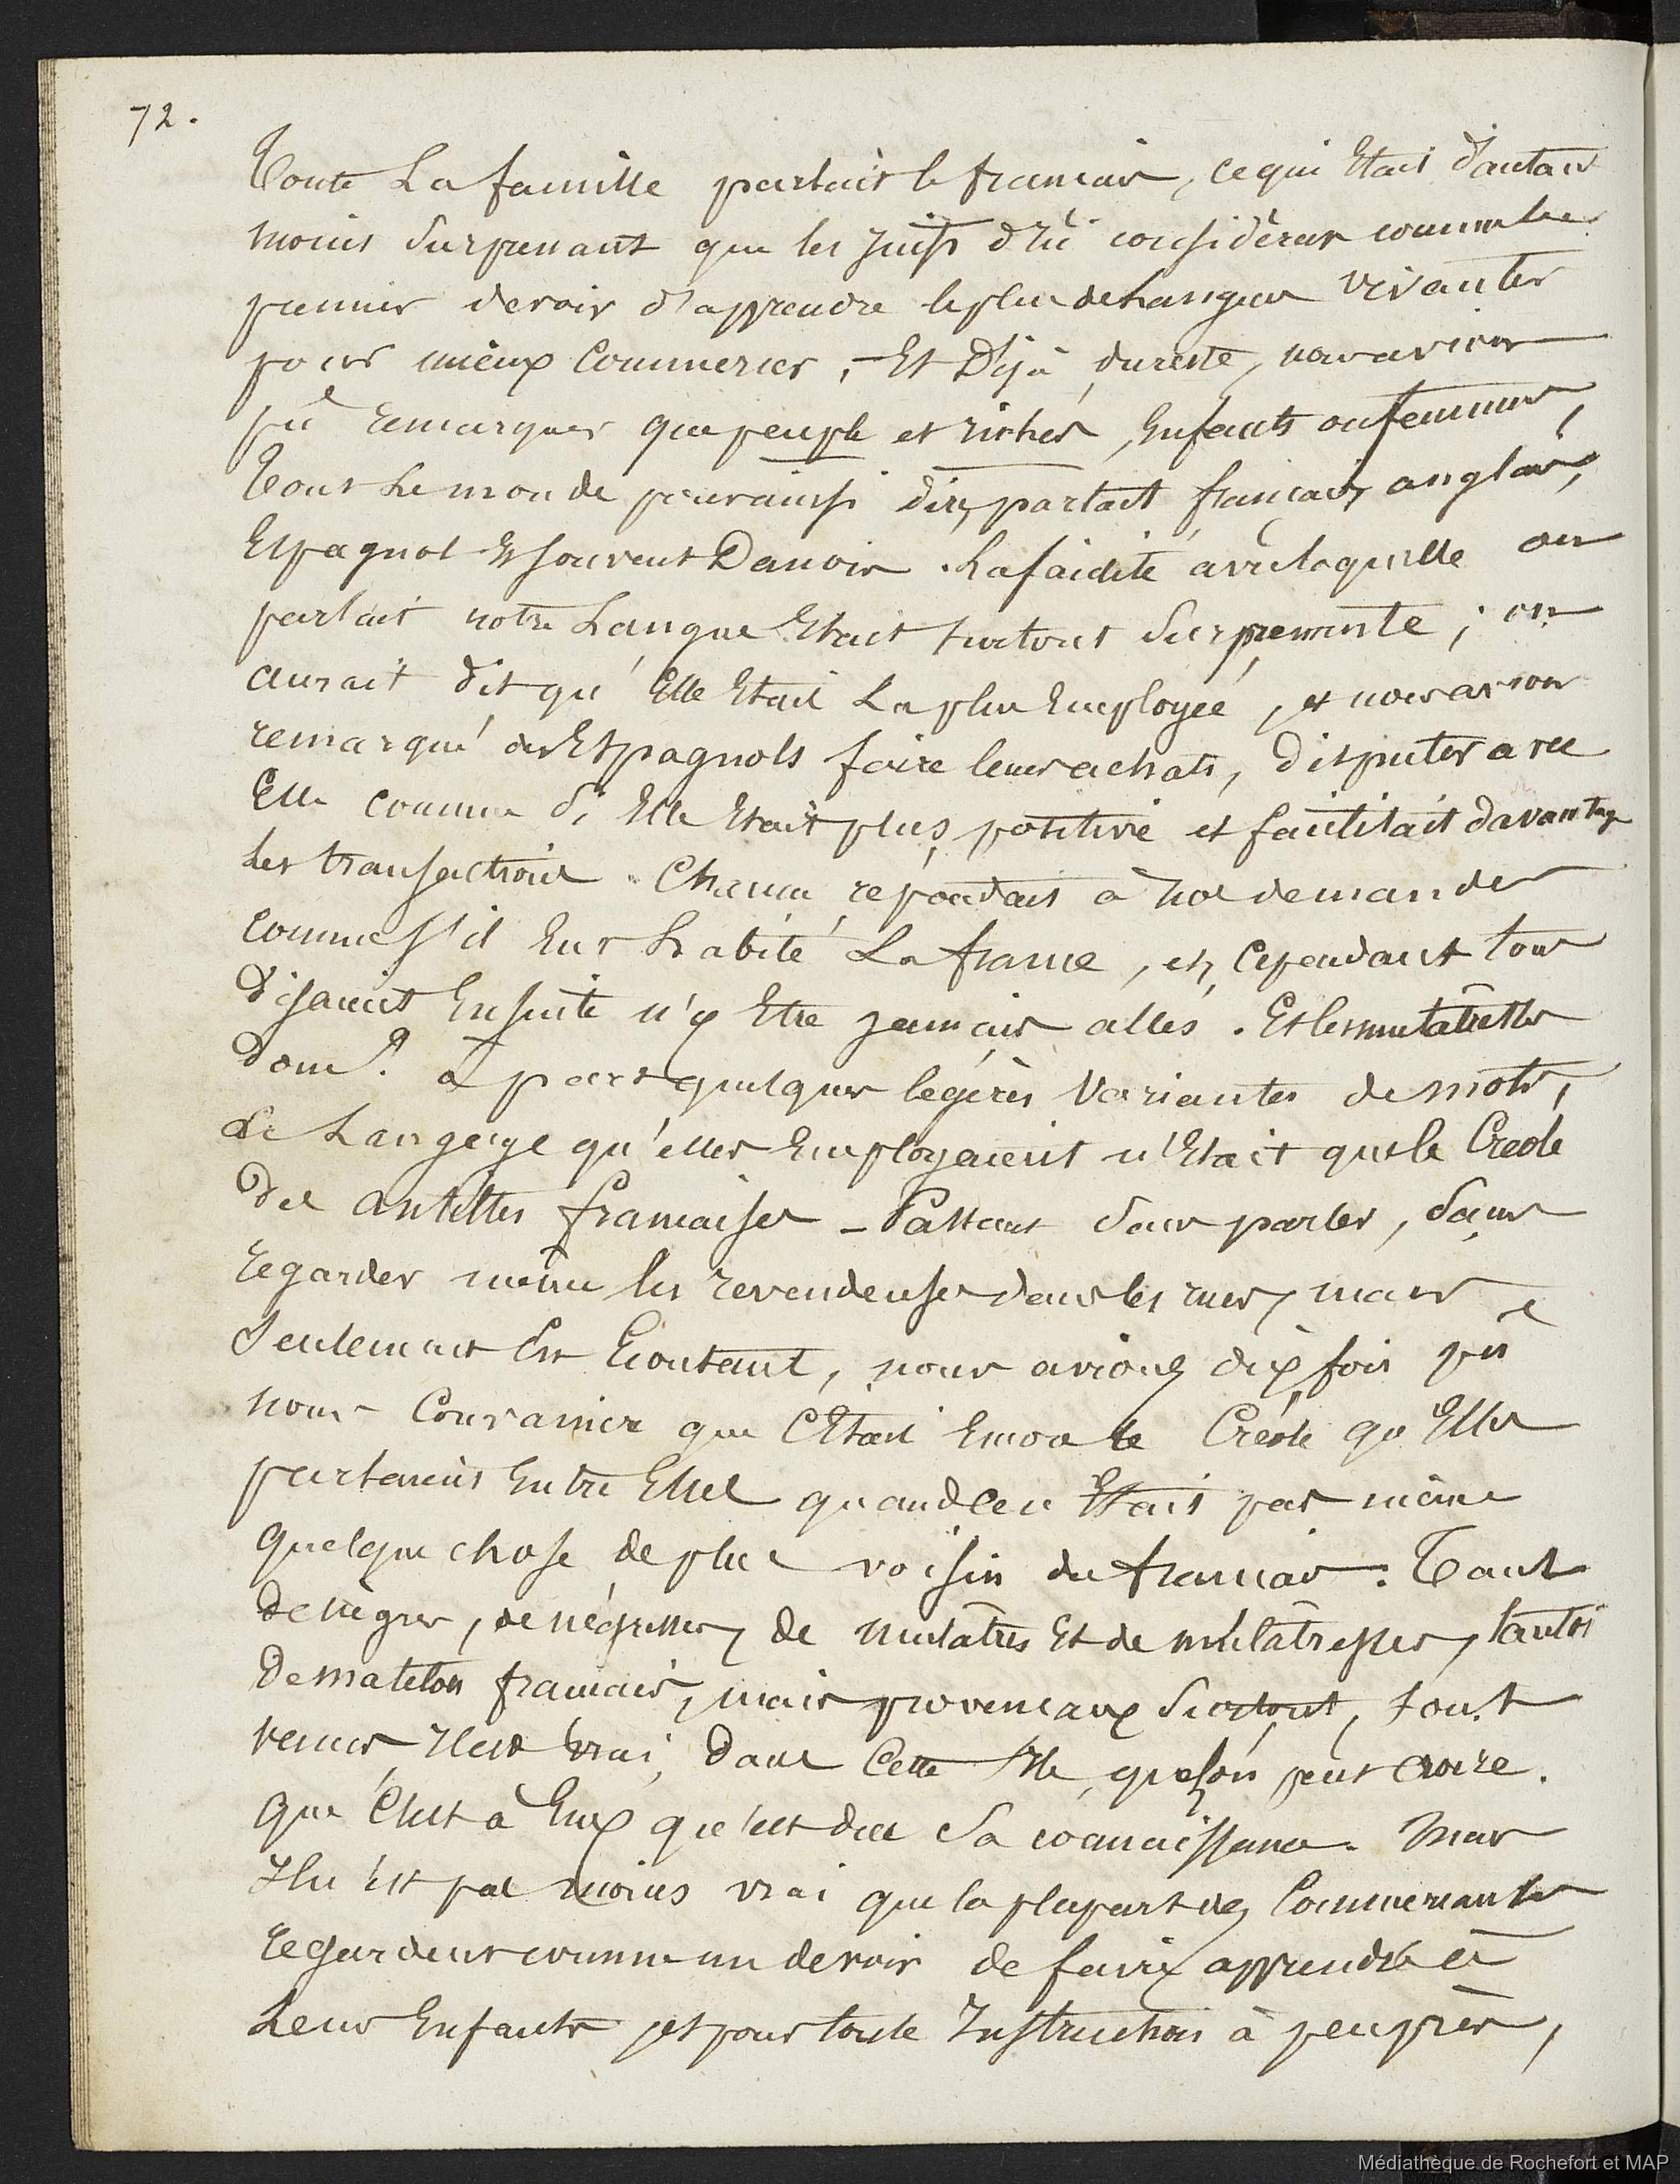 72.
Toute La famille parlait le français, ce qui Etait d'autant
moins Surprenant que les Juifs d'ici considèrent comme leur
premier devoir d'apprendre le plus de Langues vivantes
pour mieux Commercer, - Et Déjà, du reste, nous avions
pû remarquer que peuple et riches, Enfants ou femmes,
Tout Le monde pour ainsi dire, parlait français, anglais,
Espagnol Et souvent Danois. La facilité avec laquelle on
parlait notre Langue Etait surtout Surprenante ; on
aurait dit qu'Elle Etait La plus Employée, et nous avions
remarqué des Espagnols faire leurs achats, disputer avec
Elle comme Si Elle Etait plus positive et facilitait davantage
Les transactions. Chacun répondait à nos demandes
comme s'il Eut habité La france, et, Cependant tous
disaient Ensuite n'y Etre jamais allés. Et les mulâtresses
donc ? à part quelques légères Variantes de mots,
Le Langage qu'elles Employaient n'Etait que le Créole
des antilles françaises - Passant sans parler, sans
regarder même les revendeuses dans les rues, mais
Seulement En Ecoutant, nous avions dix fois pû
nous Convaincre que C'Etait Encore le Créole qu'Elles
parlaient Entre Elles quand ce n'Etait pas même
quelque chose de plus voisin du français. Tant
de nègres, de négresses, de mulâtres Et de mulâtresses, tant
de matelots français, mais provencaux Surtout, sont
venus, Il est vrai, dans Cette Ile, que l'on peut croire.
que C'est à Eux qu'est due Sa connaissance. Mais
Il n'est pas moins vrai que la plupart des Commerçants
regardent comme un devoir de faire apprendre à
Leurs Enfants, et pour toute Instruction à peu près,
Médiathèque de Rochefort et MAP